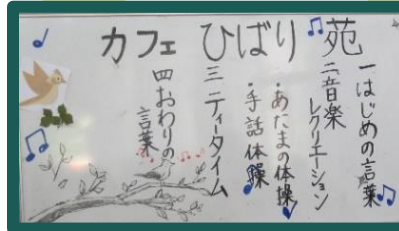 カフェ ひばり苑
一 はじめの言葉
二 音楽
レクリエーション
・あたまの体操
・手話体操
三 ティータイム
四 おわりの
言葉